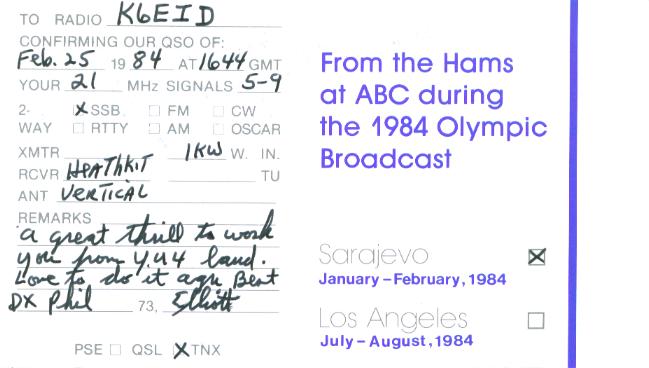 TO RADIO K6EID
CONFIRMING OUR QSO OF:
Feb. 25 1984 AT 1644 GMT
YOUR 21 MHz SIGNALS 5-9
2- X SSB FM CW
WAY RTTY AM OSCAR
XMTR 1KW W. IN.
RCVR HEATHKIT TU
ANT VERTICAL
REMARKS
a great thrill to work
you from YU4 land.
Love to do it agn Best
DX Phil 73, Elliott
PSE QSL X TNX
From the Hams
at ABC during
the 1984 Olympic
Broadcast
Sarajevo X
January–February, 1984
Los Angeles
July–August, 1984